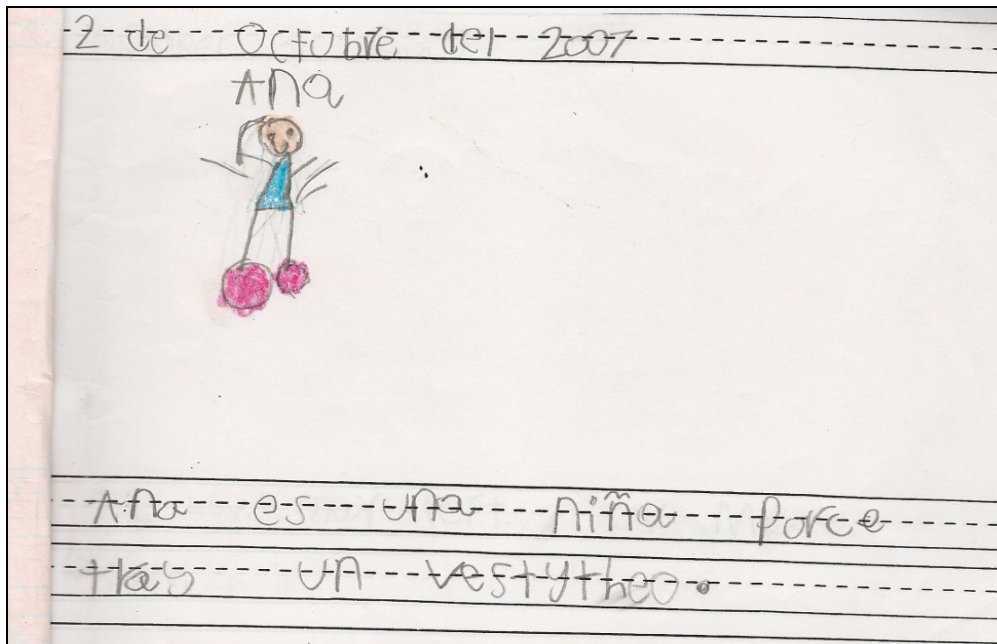 2 de Octubre del 2007
Ana
Ana es una niña Porce
tray un vestytheo.